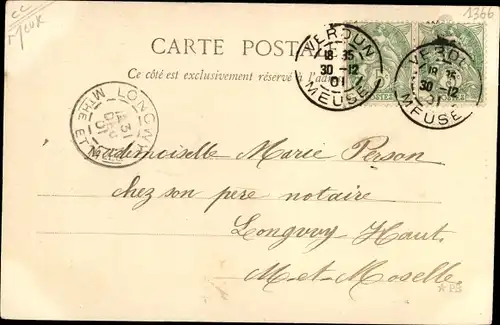 1366
CC
CARTE POSTA
Ce côté est exclusivement réservé à l'adre
VERDUN
18 35
30 -12
01
MEUSE
VERDU
18 35
30 -12
01
MEUSE
LONGWY
31
DEC
01
MTHE ET
Mademoiselle Marie Person
chez son père notaire
Longwy-Haut.
M-et-Moselle.
PB